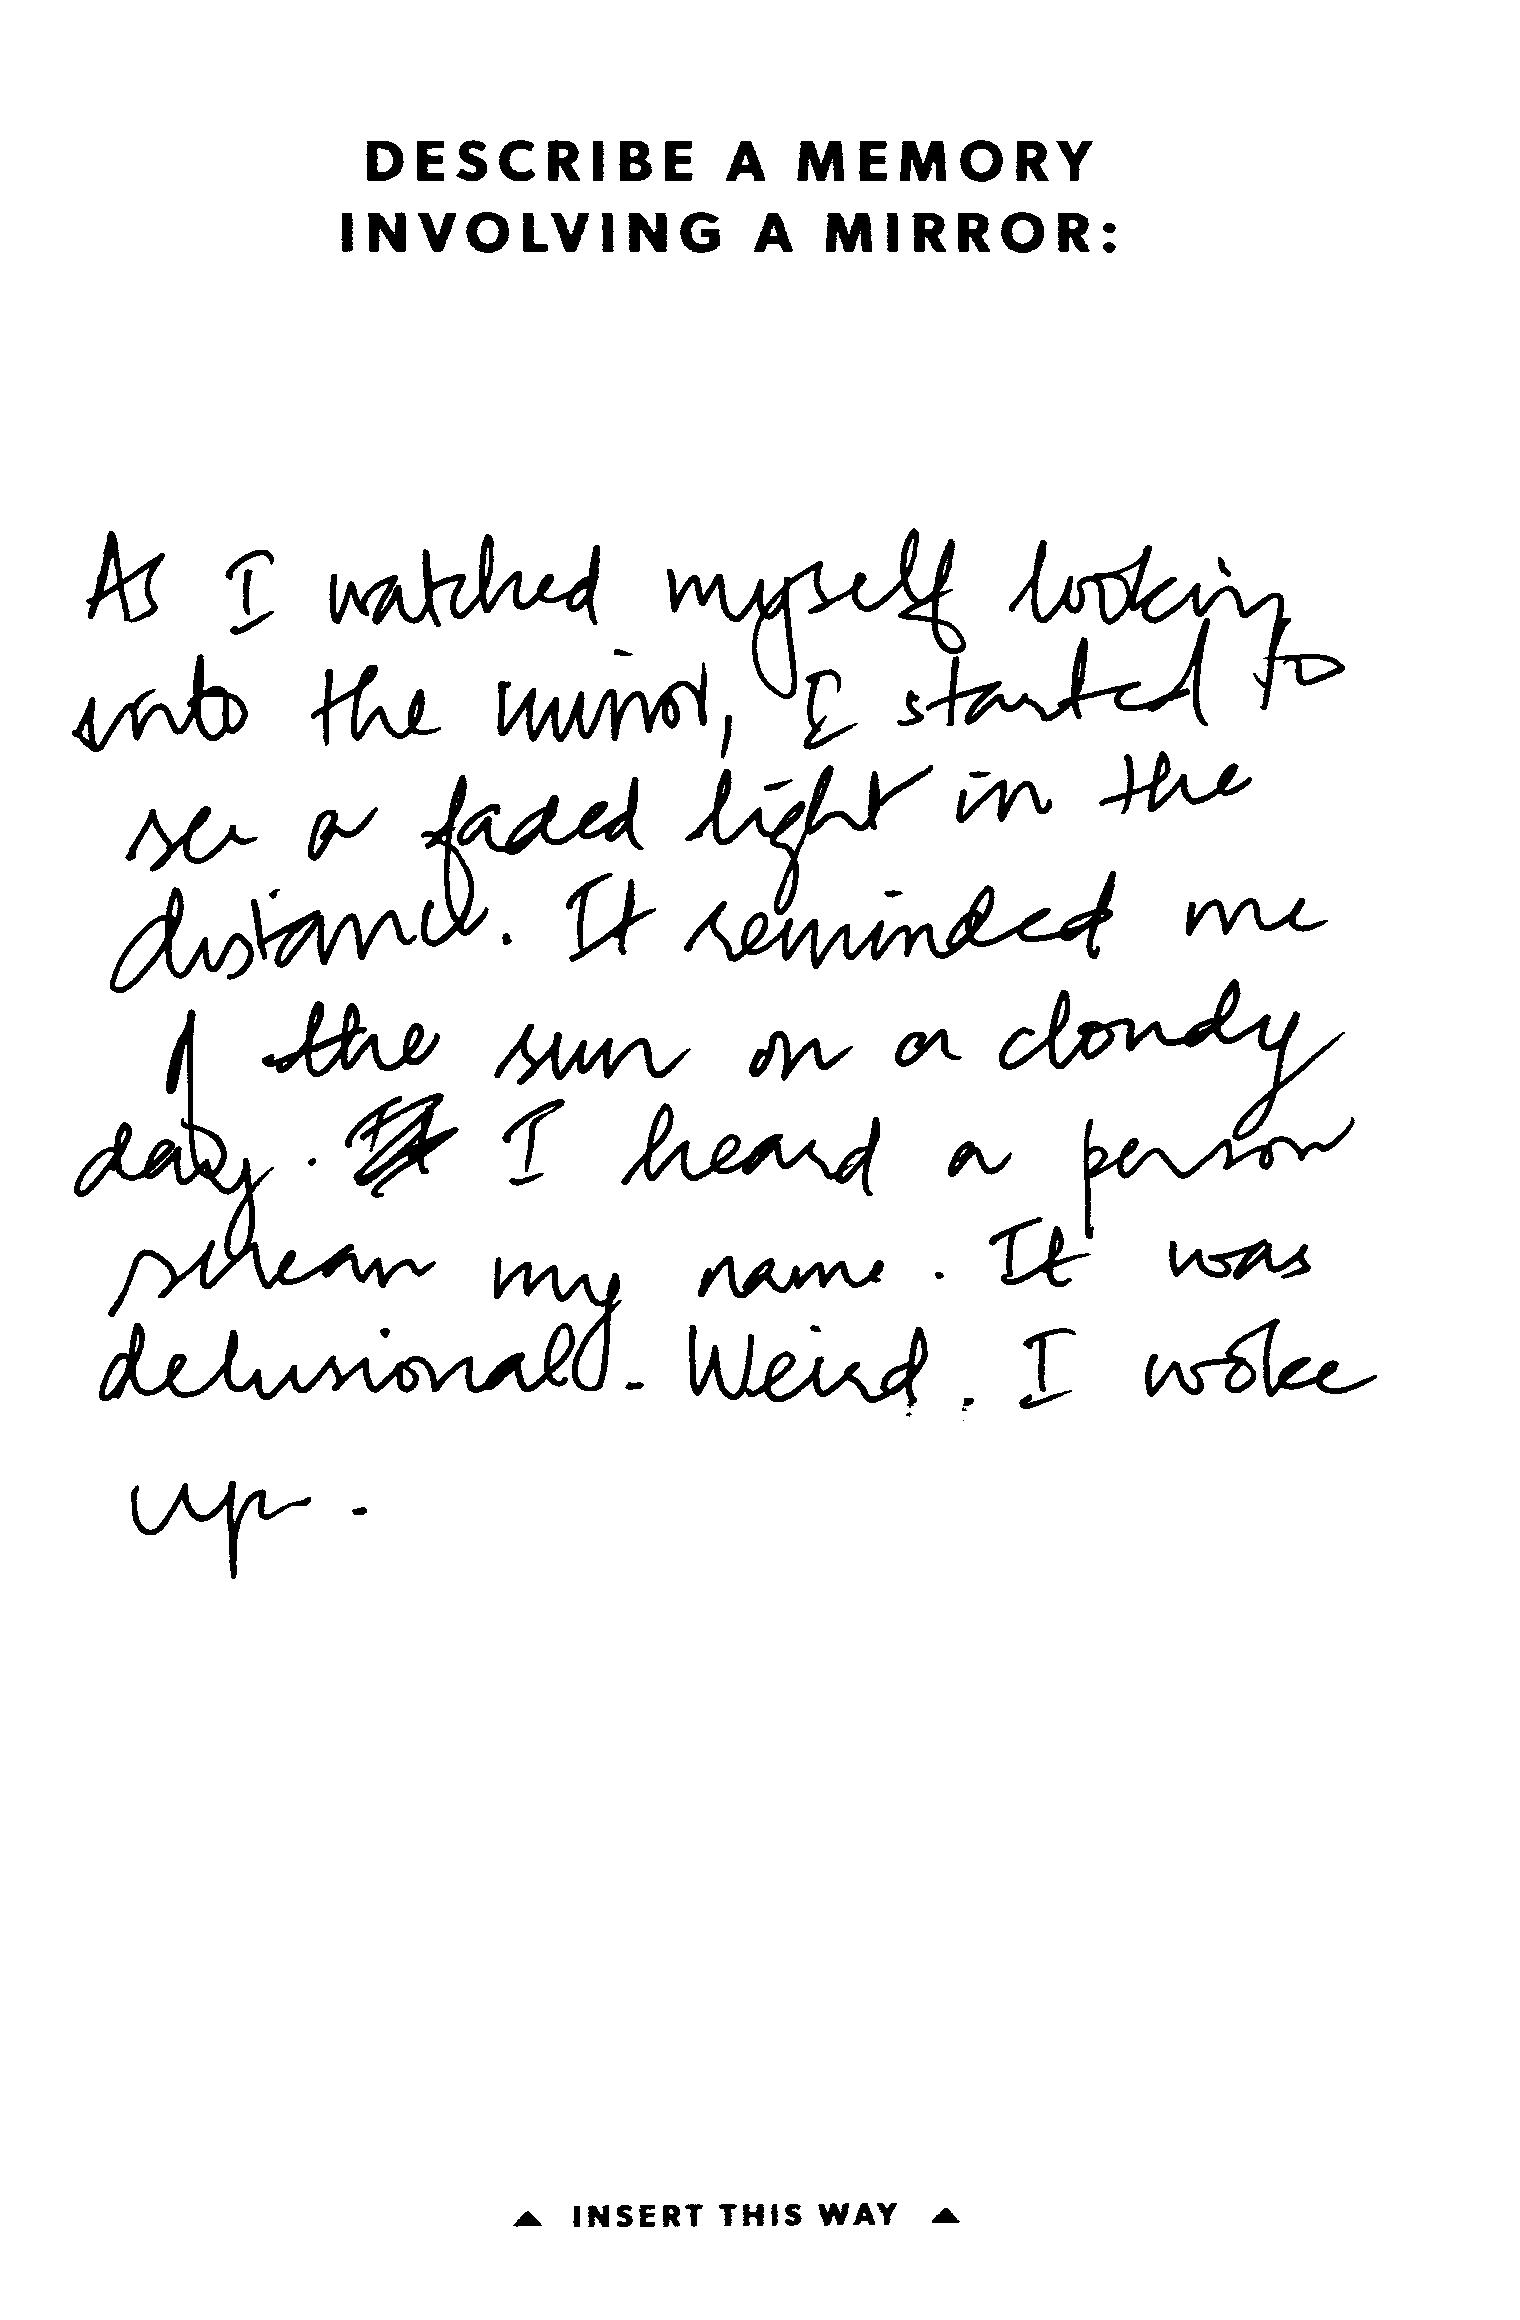 DESCRIBE A MEMORY
INVOLVING A MIRROR:
As I watched myself looking
into the mirror, I started to
see a faded light in the
distance. It reminded me
of the sun on a cloudy
day. I heard a person
scream my name. It was
delusional. Weird. I woke
up.
▲ INSERT THIS WAY ▲